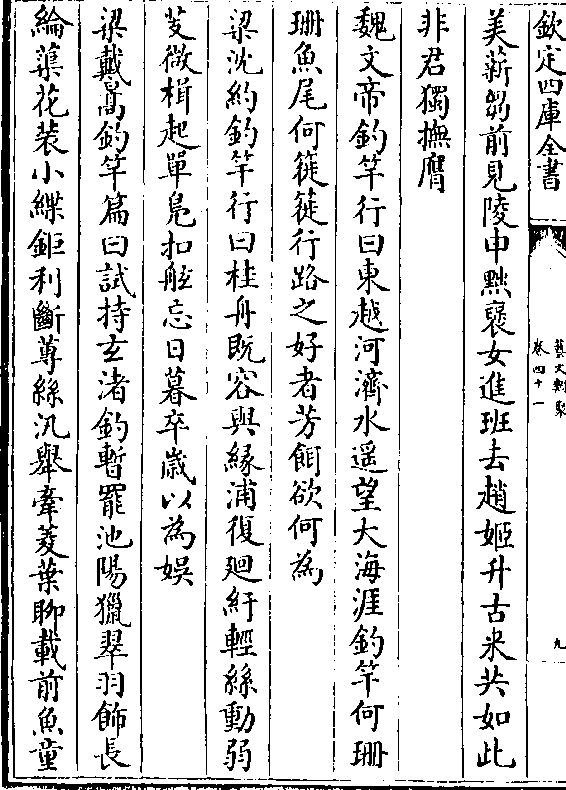 欽定四庫全書
藝文類聚
卷四十一
九
美薪芻前見陵申黜褒女進班去趙姬升古來共如此
非君獨撫膺
魏文帝釣竿行曰東越河濟水遥望大海涯釣竿何珊
珊魚尾何簁簁行路之好者芳餌欲何為
梁沈約釣竿行曰桂舟既容與緣浦復廻紆輕絲動弱
芰微楫起單鳬扣舷忘日暮卒歳以為娱
梁戴暠釣竿篇曰試持玄渚釣暫罷池陽獵翠羽飾長
綸蕖花装小䌈鉅利斷蓴絲汎舉牽菱葉聊載前魚童